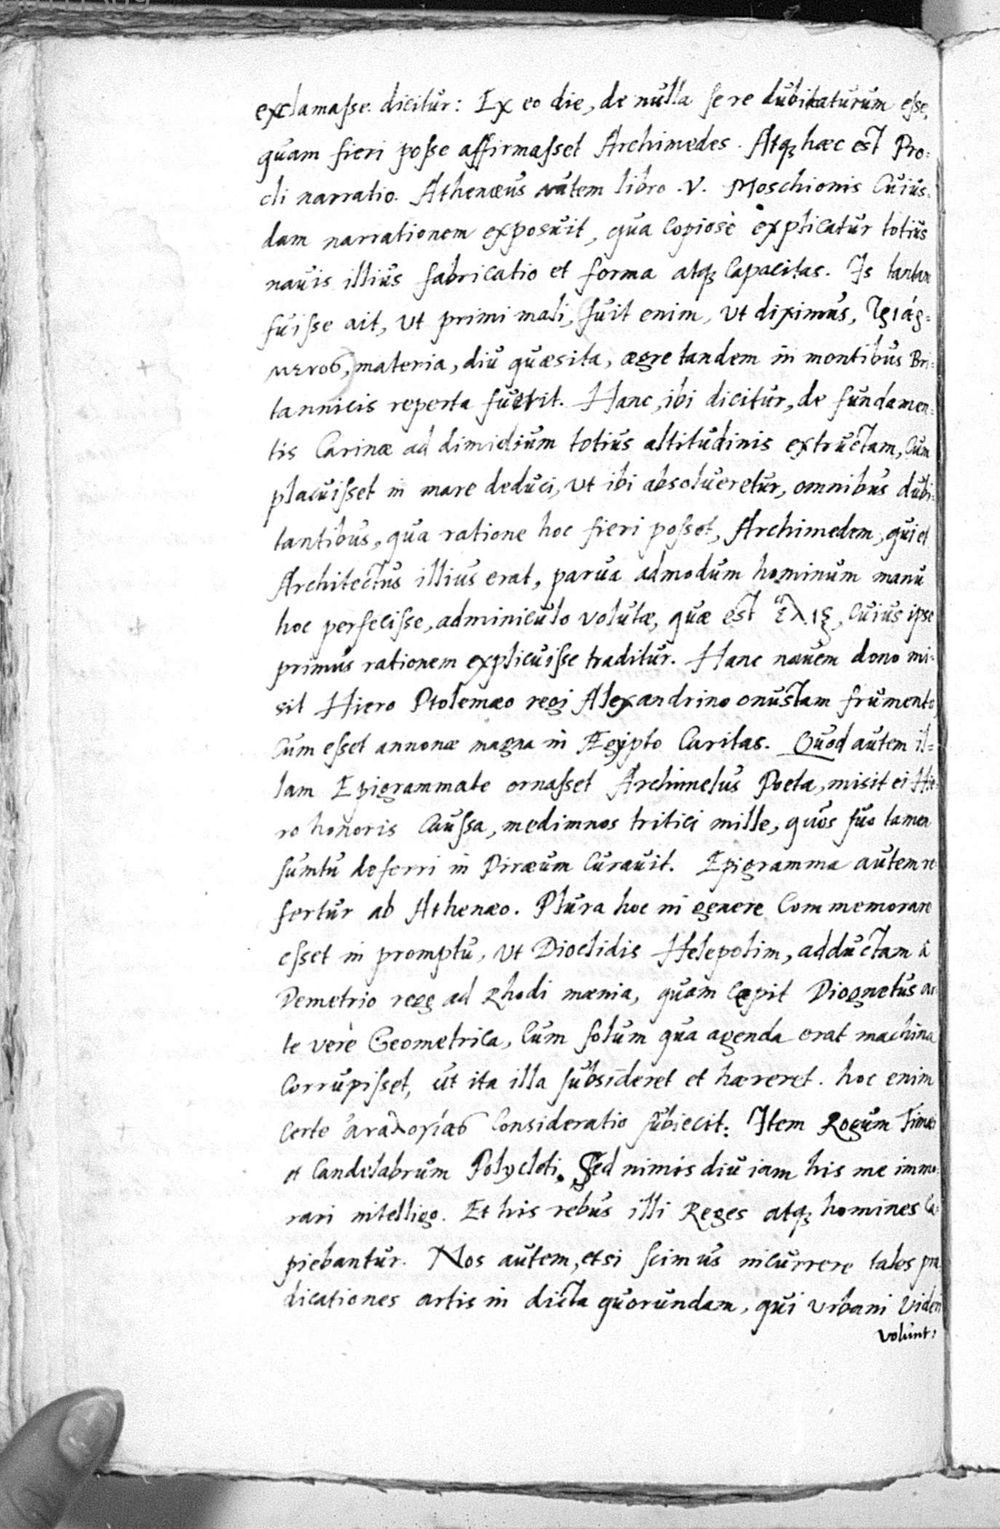 exclamasse dicitur: Ex eo die, de nulla se re dubitaturum esse,
quam fieri posse affirmasset Archimedes. Atq; hæc est Pro-
cli narratio. Athenæus autem libro .V. Moschionis Cuius-
dam narrationem exposuit, qua Copiosè explicatur totius
nauis illius fabricatio et forma atq; Capacitas. Is tantam
fuisse ait, ut primi mali, fuit enim, ut diximus, τριάρ-
μενος, materia, diu quæsita, ægre tandem in montibus Bri-
tannicis reperta fuerit. Hanc, ibi dicitur, de fundamen-
tis Carinæ ad dimidium totius altitudinis extructam, Cum
placuisset in mare deduci, ut ibi absolueretur, omnibus dubi-
tantibus, qua ratione hoc fieri posset, Archimedem, qui et
Architectus illius erat, parua admodum hominum manu
hoc perfecisse, adminiculo volutæ, quæ est ἕλιξ, Cuius ipse
primus rationem explicuisse traditur. Hanc nauem dono mi-
sit Hiero Ptolemæo regi Alexandrino onustam frumento,
Cum esset annonæ magna in Ægypto Caritas. Quod autem il-
lam Epigrammate ornasset Archimelus Poeta, misit ei Hie-
ro honoris Caussa, medimnos tritici mille, quos suo tamen
sumtu deferri in Piræum Curauit. Epigramma autem re
fertur ab Athenæo. Plura hoc in genere Commemorare
esset in promptu, ut Dioclidis Helepolim, adductam a
Demetrio rege ad Rhodi mænia, quam Cæpit Diognetus ar
te verè Geometrica, Cum solum qua agenda erat machina
Corrupisset, ut ita illa subsideret et hæreret. hoc enim
Certe ἀναλογίας Consideratio subiecit: Item Rogum Timæi
et Candelabrum Polycleti. Sed nimis diu iam his me immo-
rari intelligo. Et his rebus illi Reges atq; homines Ca-
piebantur. Nos autem, etsi scimus incurrere tales præ
dicationes artis in dicta quorundam, qui urbani videri
volunt: